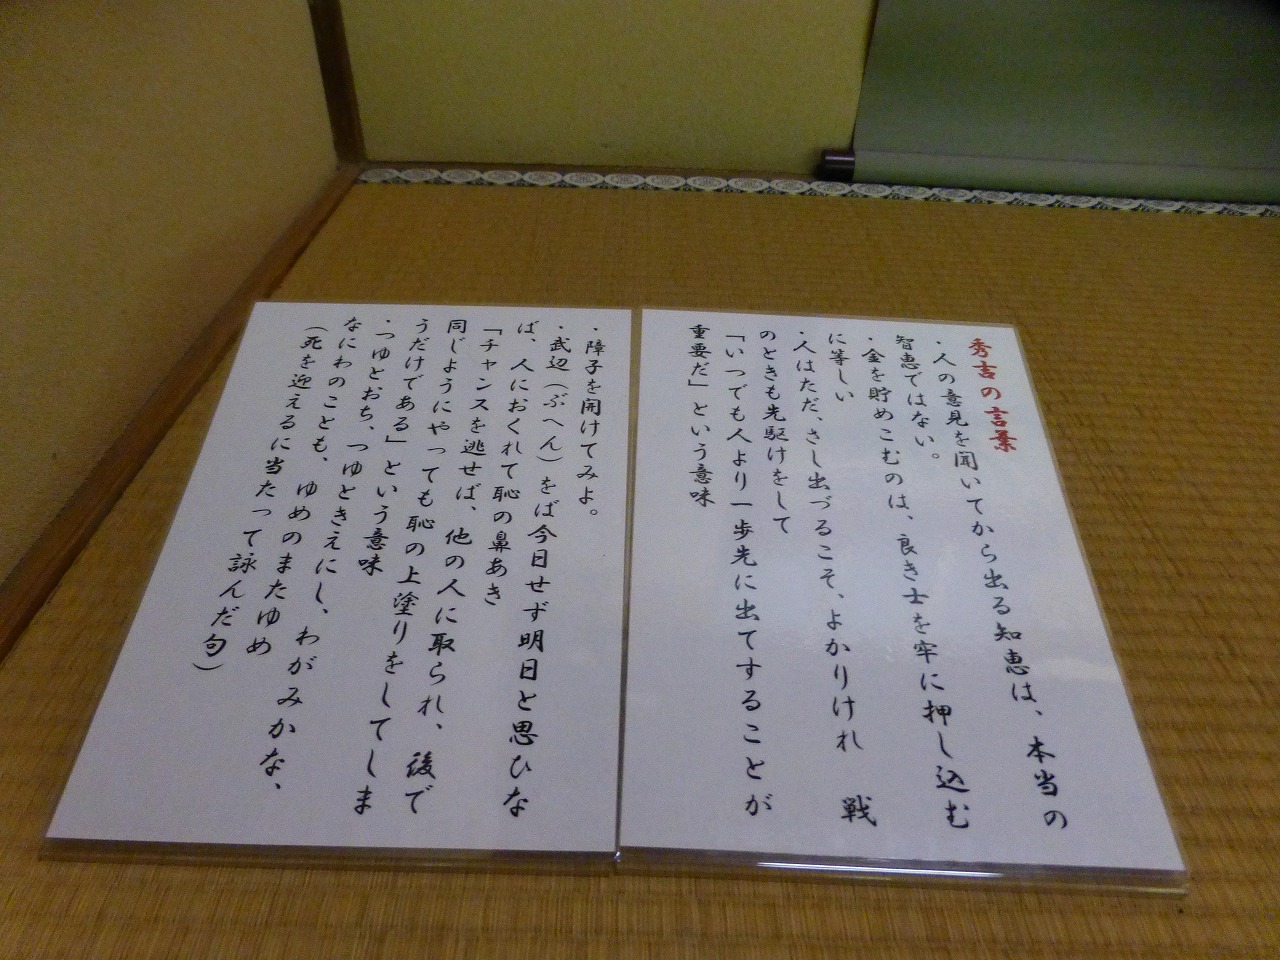 秀吉の言葉
・人の意見を聞いてから出る知恵は、本当の
智恵ではない。
・金を貯めこむのは、良き士を牢に押し込む
に等しい
・人はただ、さし出づるこそ、よかりけれ　戦
のときも先駆けをして
「いつでも人より一歩先に出てすることが
重要だ」という意味
・障子を開けてみよ。
・武辺（ぶへん）をば今日せず明日と思ひな
ば、人におくれて恥の鼻あき
「チャンスを逃せば、他の人に取られ、後で
同じようにやっても恥の上塗りをしてしま
うだけである」という意味
・つゆとおち、つゆときえにし、わがみかな、
なにわのことも、ゆめのまたゆめ
（死を迎えるに当たって詠んだ句）